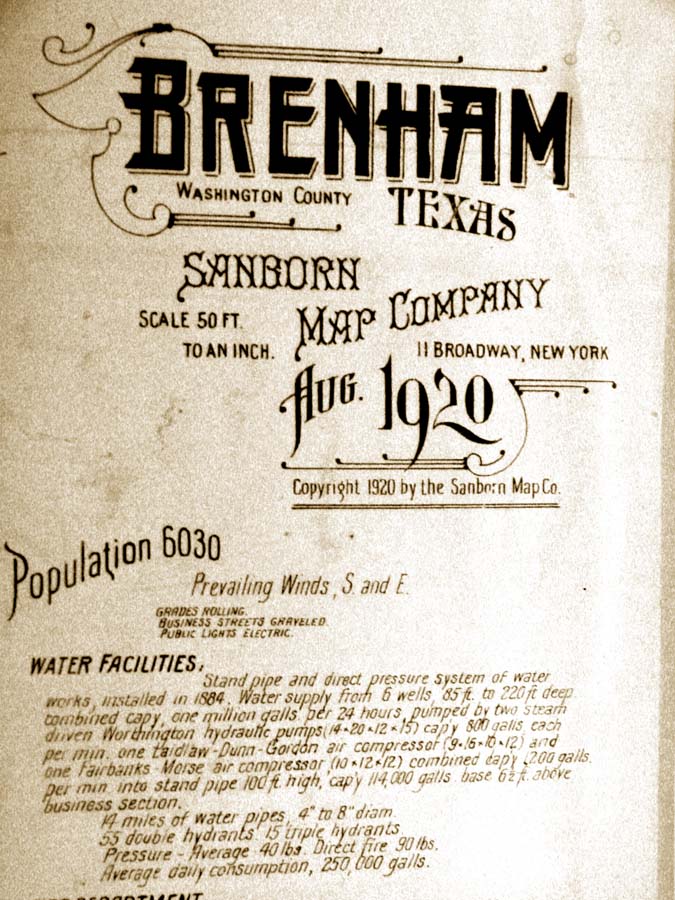 BRENHAM
WASHINGTON COUNTY TEXAS
SANBORN
MAP COMPANY
SCALE 50 FT.
TO AN INCH.
11 BROADWAY, NEW YORK
AUG. 1920
Copyright 1920 by the Sanborn Map Co.
Population 6030
Prevailing Winds, S. and E.
GRADES ROLLING.
BUSINESS STREETS GRAVELED.
PUBLIC LIGHTS ELECTRIC.
WATER FACILITIES,
Stand pipe and direct pressure system of water
works, installed in 1884. Water supply from 6 wells, 85 ft. to 220 ft deep
combined capy, one million galls. per 24 hours, pumped by two steam
driven Worthington hydraulic pumps (14×20×12×15) cap'y 800 galls each
per min. one Laidlaw-Dunn-Gordon air compressor (9×16×10×12) and
one Fairbanks-Morse air compressor, (10×12×12) combined cap'y 1200 galls.
per min. into stand pipe 100 ft high, cap'y 114,000 galls. base 6½ ft. above
business section.
14 miles of water pipes, 4" to 8" diam.
55 double hydrants 15 triple hydrants
Pressure - Average 40 lbs. Direct fire 90 lbs.
Average daily consumption, 250,000 galls.
DEPARTMENT